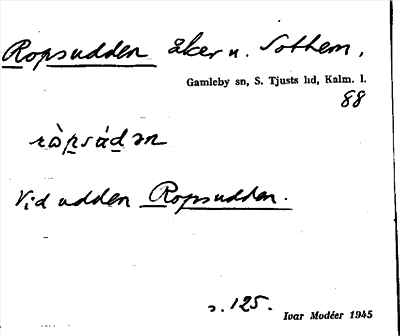 Ropsudden åker u. Sothem.
Gamleby sn, S. Tjusts hd, Kalm. l.
88
ròpsádən
Vid udden Ropsudden.
s. 125.
Ivar Modéer 1945